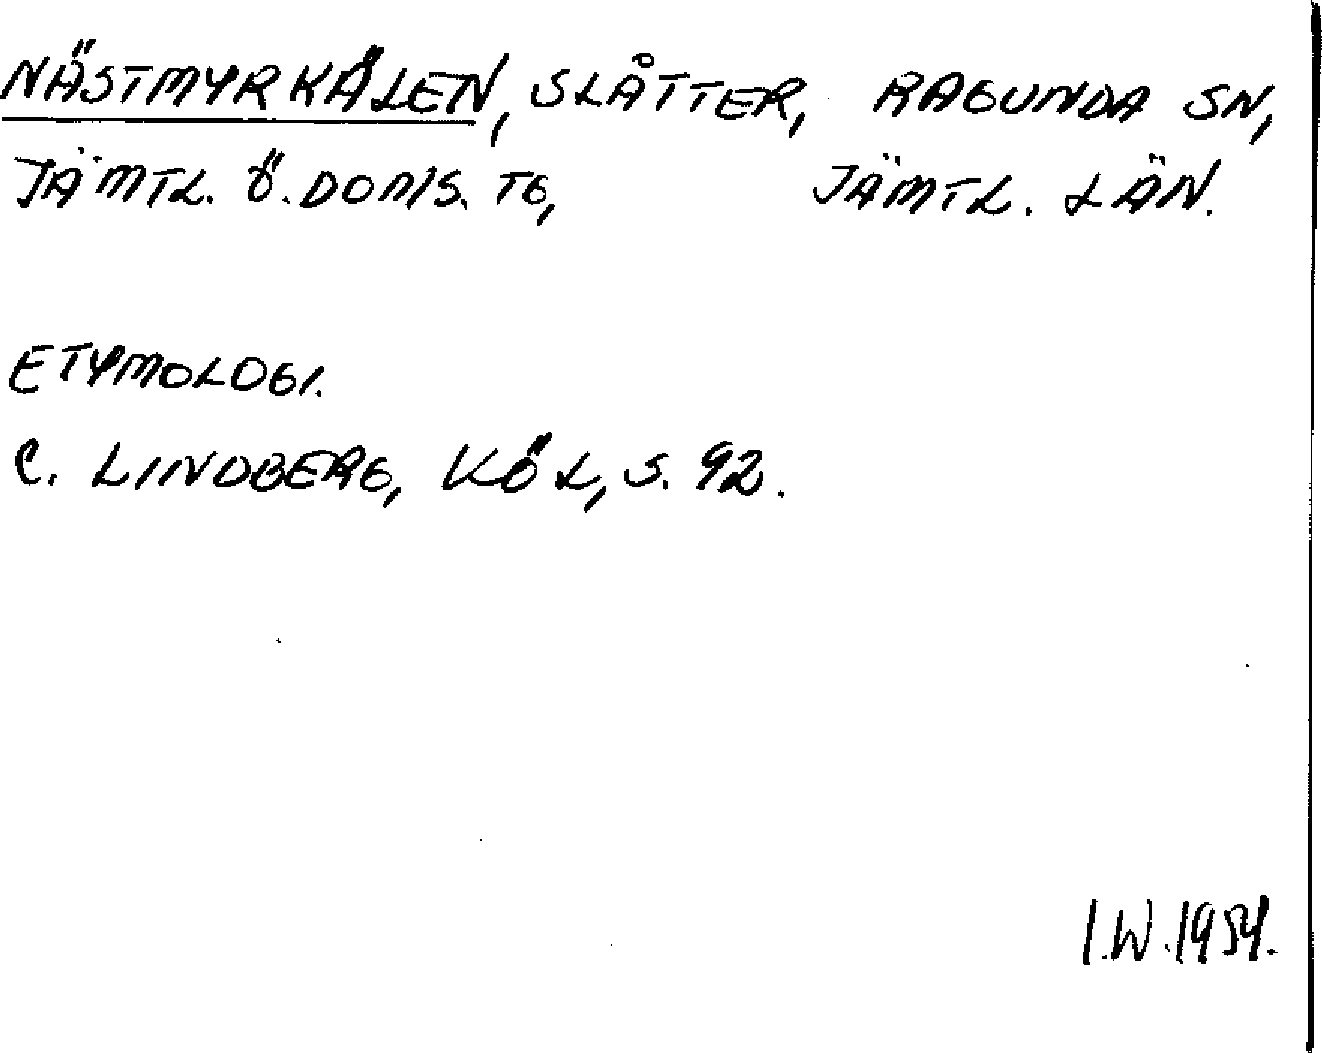 NÄSTMYRKÄLEN, SLÅTTER, RAGUNDA SN,
JÄMTL. Ö. DOMS. TG, JÄMTL. LÄN.
ETYMOLOGI.
C. LINDBERG, KÖL, S. 92.
I.W. 1954.